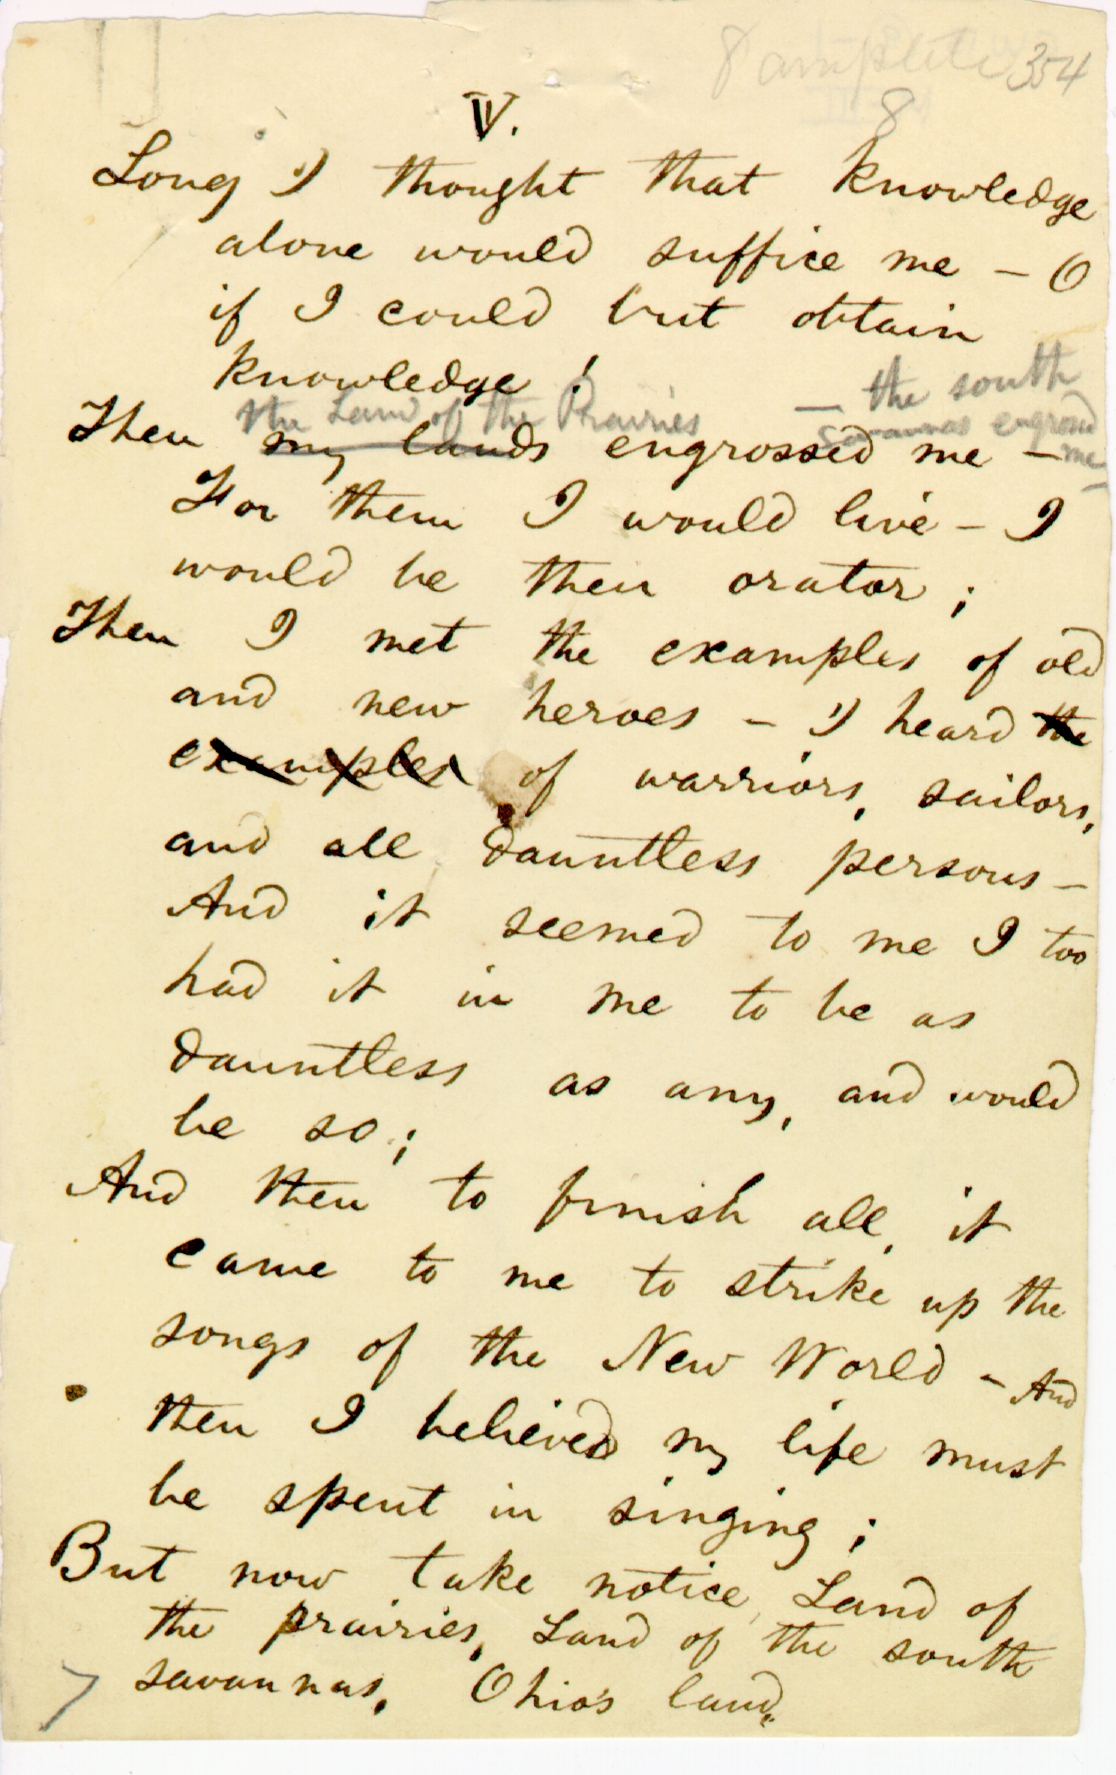 354
V.
8
Long I thought that knowledge
alone would suffice me – O
if I could but obtain
knowledge!
the Land of the Prairies — the south
Then my lands engrossed me – savannas engrossed me –
For them I would live – I
would be their orator;
Then I met the examples of old
and new heroes – I heard the
examples of warriors, sailors,
and all dauntless persons –
And it seemed to me I too
had it in me to be as
dauntless as any, and would
be so;
And then to finish all, it
came to me to strike up the
songs of the New World – And
then I believed my life must
be spent in singing;
But now take notice, Land of
the prairies, Land of the south
savannas, Ohio's land,